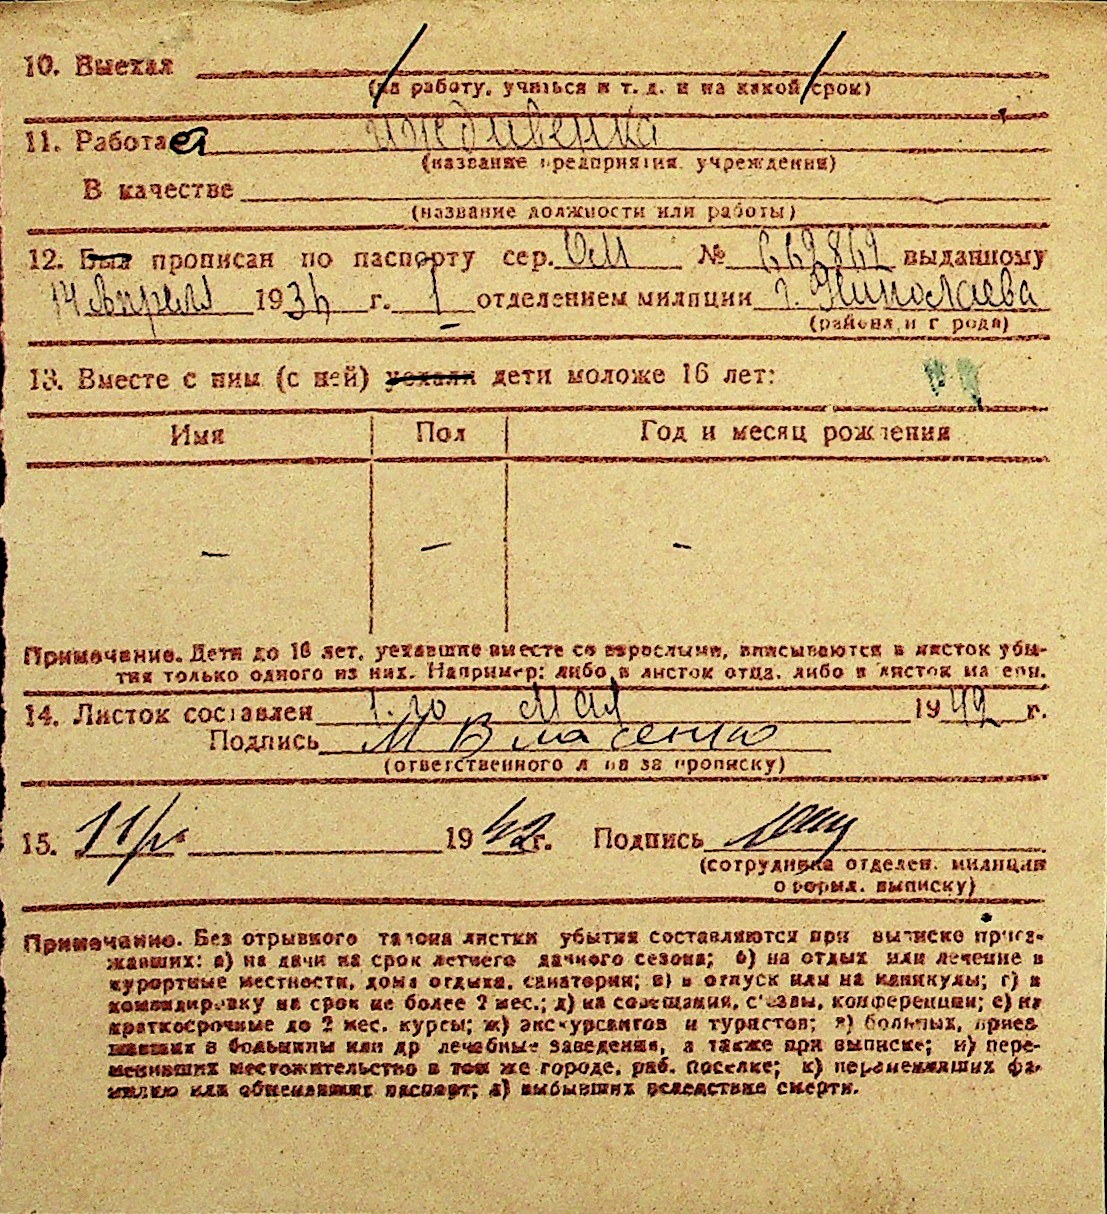 10. Выехал
(на работу, учиться и т. д. и на какой срок)
11. Работает иждивенка
(название предприятия, учреждения)
В качестве
(название должности или работы)
12. Был прописан по паспорту сер. № выданному
14 Апреля 1934 г. 1 отделением милиции г. Николаева
(района и города)
13. Вместе с ним (с ней) уехали дети моложе 16 лет:
Имя Пол Год и месяц рождения
— — —
Примечание. Дети до 16 лет, уехавшие вместе со взрослыми, вписываются в листок убы-
тия только одного из них. Например: либо в листок отца, либо в листок матери.
14. Листок составлен 1. го Мая 1942 г.
Подпись М Власенко
(ответственного лица за прописку)
15. 1942 г. Подпись
(сотрудника отделен. милиции
оформл. выписку)
Примечание. Без отрывного талона листки убытия составляются при выписке приез-
жавших: а) на дачи на срок летнего дачного сезона; б) на отдых или лечение в
курортные местности, дома отдыха, санатории; в) в отпуск или на каникулы; г) в
командировку на срок не более 2 мес.; д) на совещания, с'езды, конференции; е) на
краткосрочные до 2 мес. курсы; ж) экскурсантов и туристов; з) больных, приез-
жавших в больницы или др лечебные заведения, а также при выписке; и) пере-
менивших местожительство в том же городе, раб. поселке; к) переменивших фа-
милию или обменявших паспорт; л) выбывших вследствие смерти.